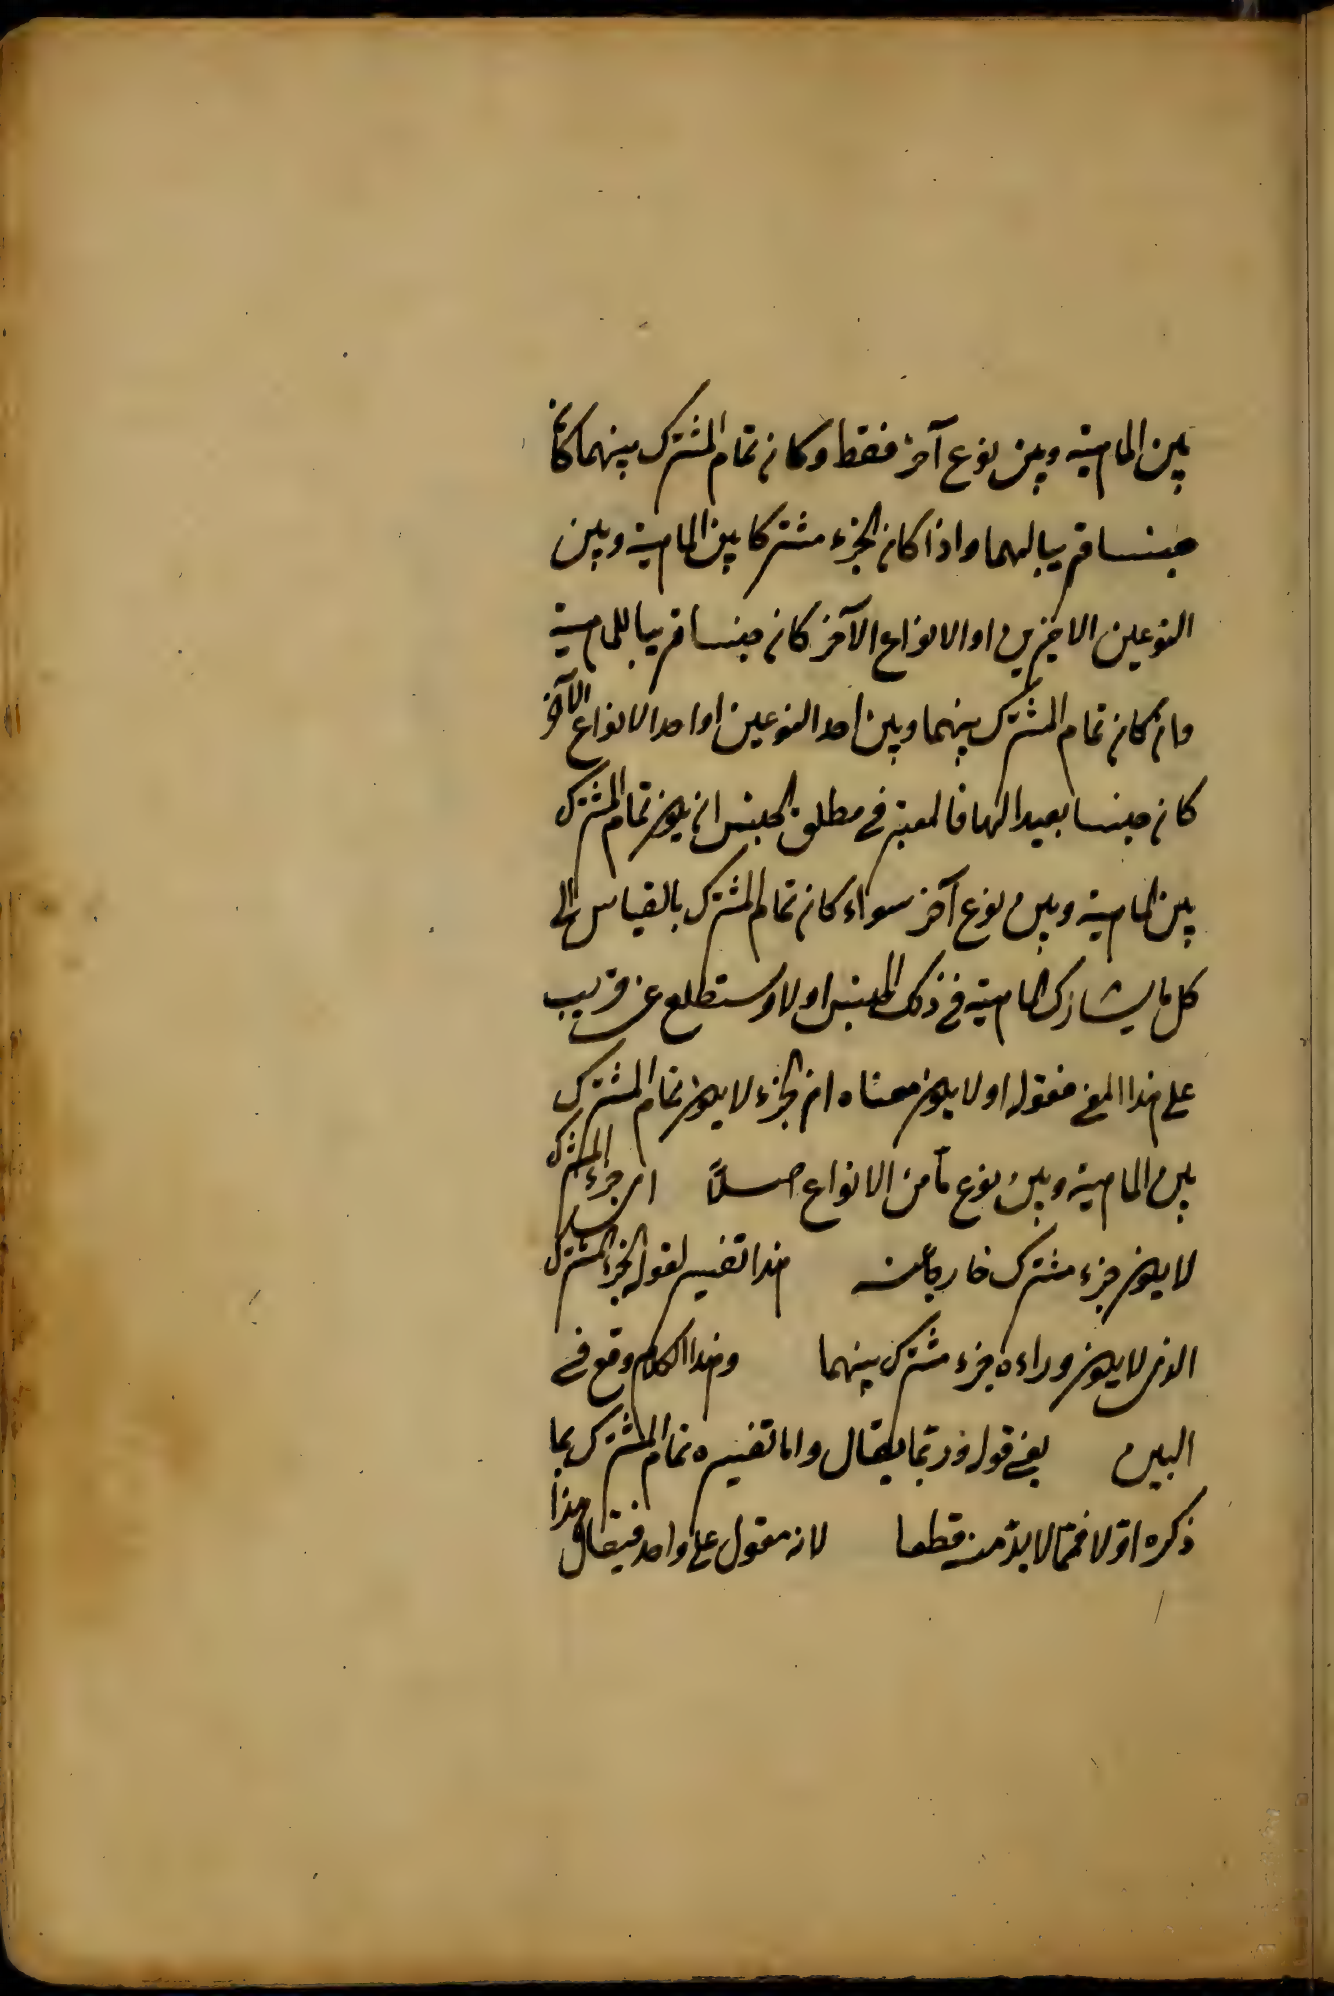 بين الماهية وبين نوع آخر فقط وكان تمام المشترك بينهما كان
جنسا قريبا لهما واذا كان الجزء مشتركا بين الماهية وبين
النوعين الاخيرين او الانواع الآخر كان جنسا قريبا للماهية
وان كان تمام المشترك بينهما وبين احد النوعين او احد الانواع الآخر
كان جنسا بعيدا لها فالمعتبر في مطلق الجنس ان يكون تمام المشترك
بين الماهية وبين نوع آخر سواء كان تمام المشترك بالقياس الى
كل ما يشارك الماهية في ذلك الجنس اولا وستطلع عن قريب
على هذا المعنى فقوله او لا يكون معناه ان الجزء لا يكون تمام المشترك
بين الماهية وبين نوع ما من الانواع اصلا اى جزء المشترك
لا يكون جزء مشترك خارجا عنه هذا تفسير لقوله الجزء المشترك
الذى لا يكون وراءه جزء مشترك بينهما وهذا الكلام وقع في
البين يعنى قوله وربما يقال واما تفسيره تمام المشترك بما
ذكره اولا فمما لا بد منه قطعا لانه مقول على واحد فيقال هذا